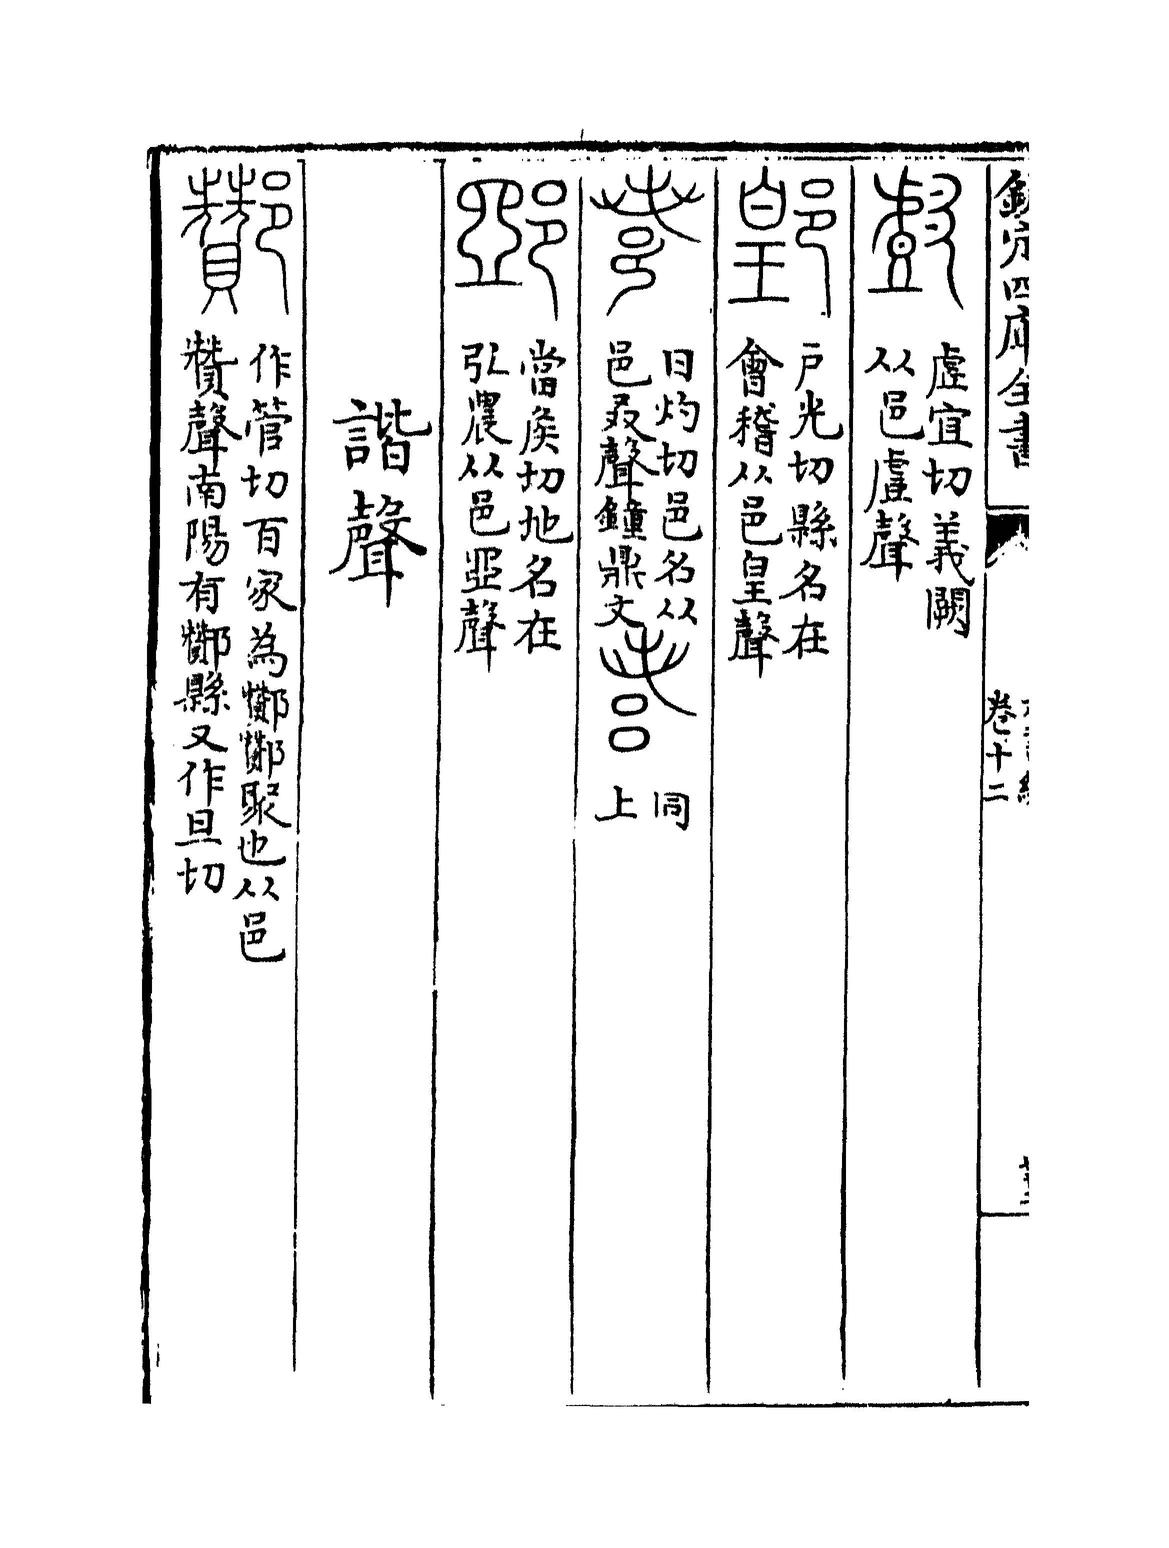 欽定四庫全書
卷十二
虛宜切義闕
从邑虛聲
戶光切縣名在
會稽从邑皇聲
日灼切邑名从
邑叒聲鐘鼎文
同
上
當侯切地名在
弘農从邑亞聲
諧聲
作管切百家為酇酇聚也从邑
贊聲南陽有酇縣又作旦切